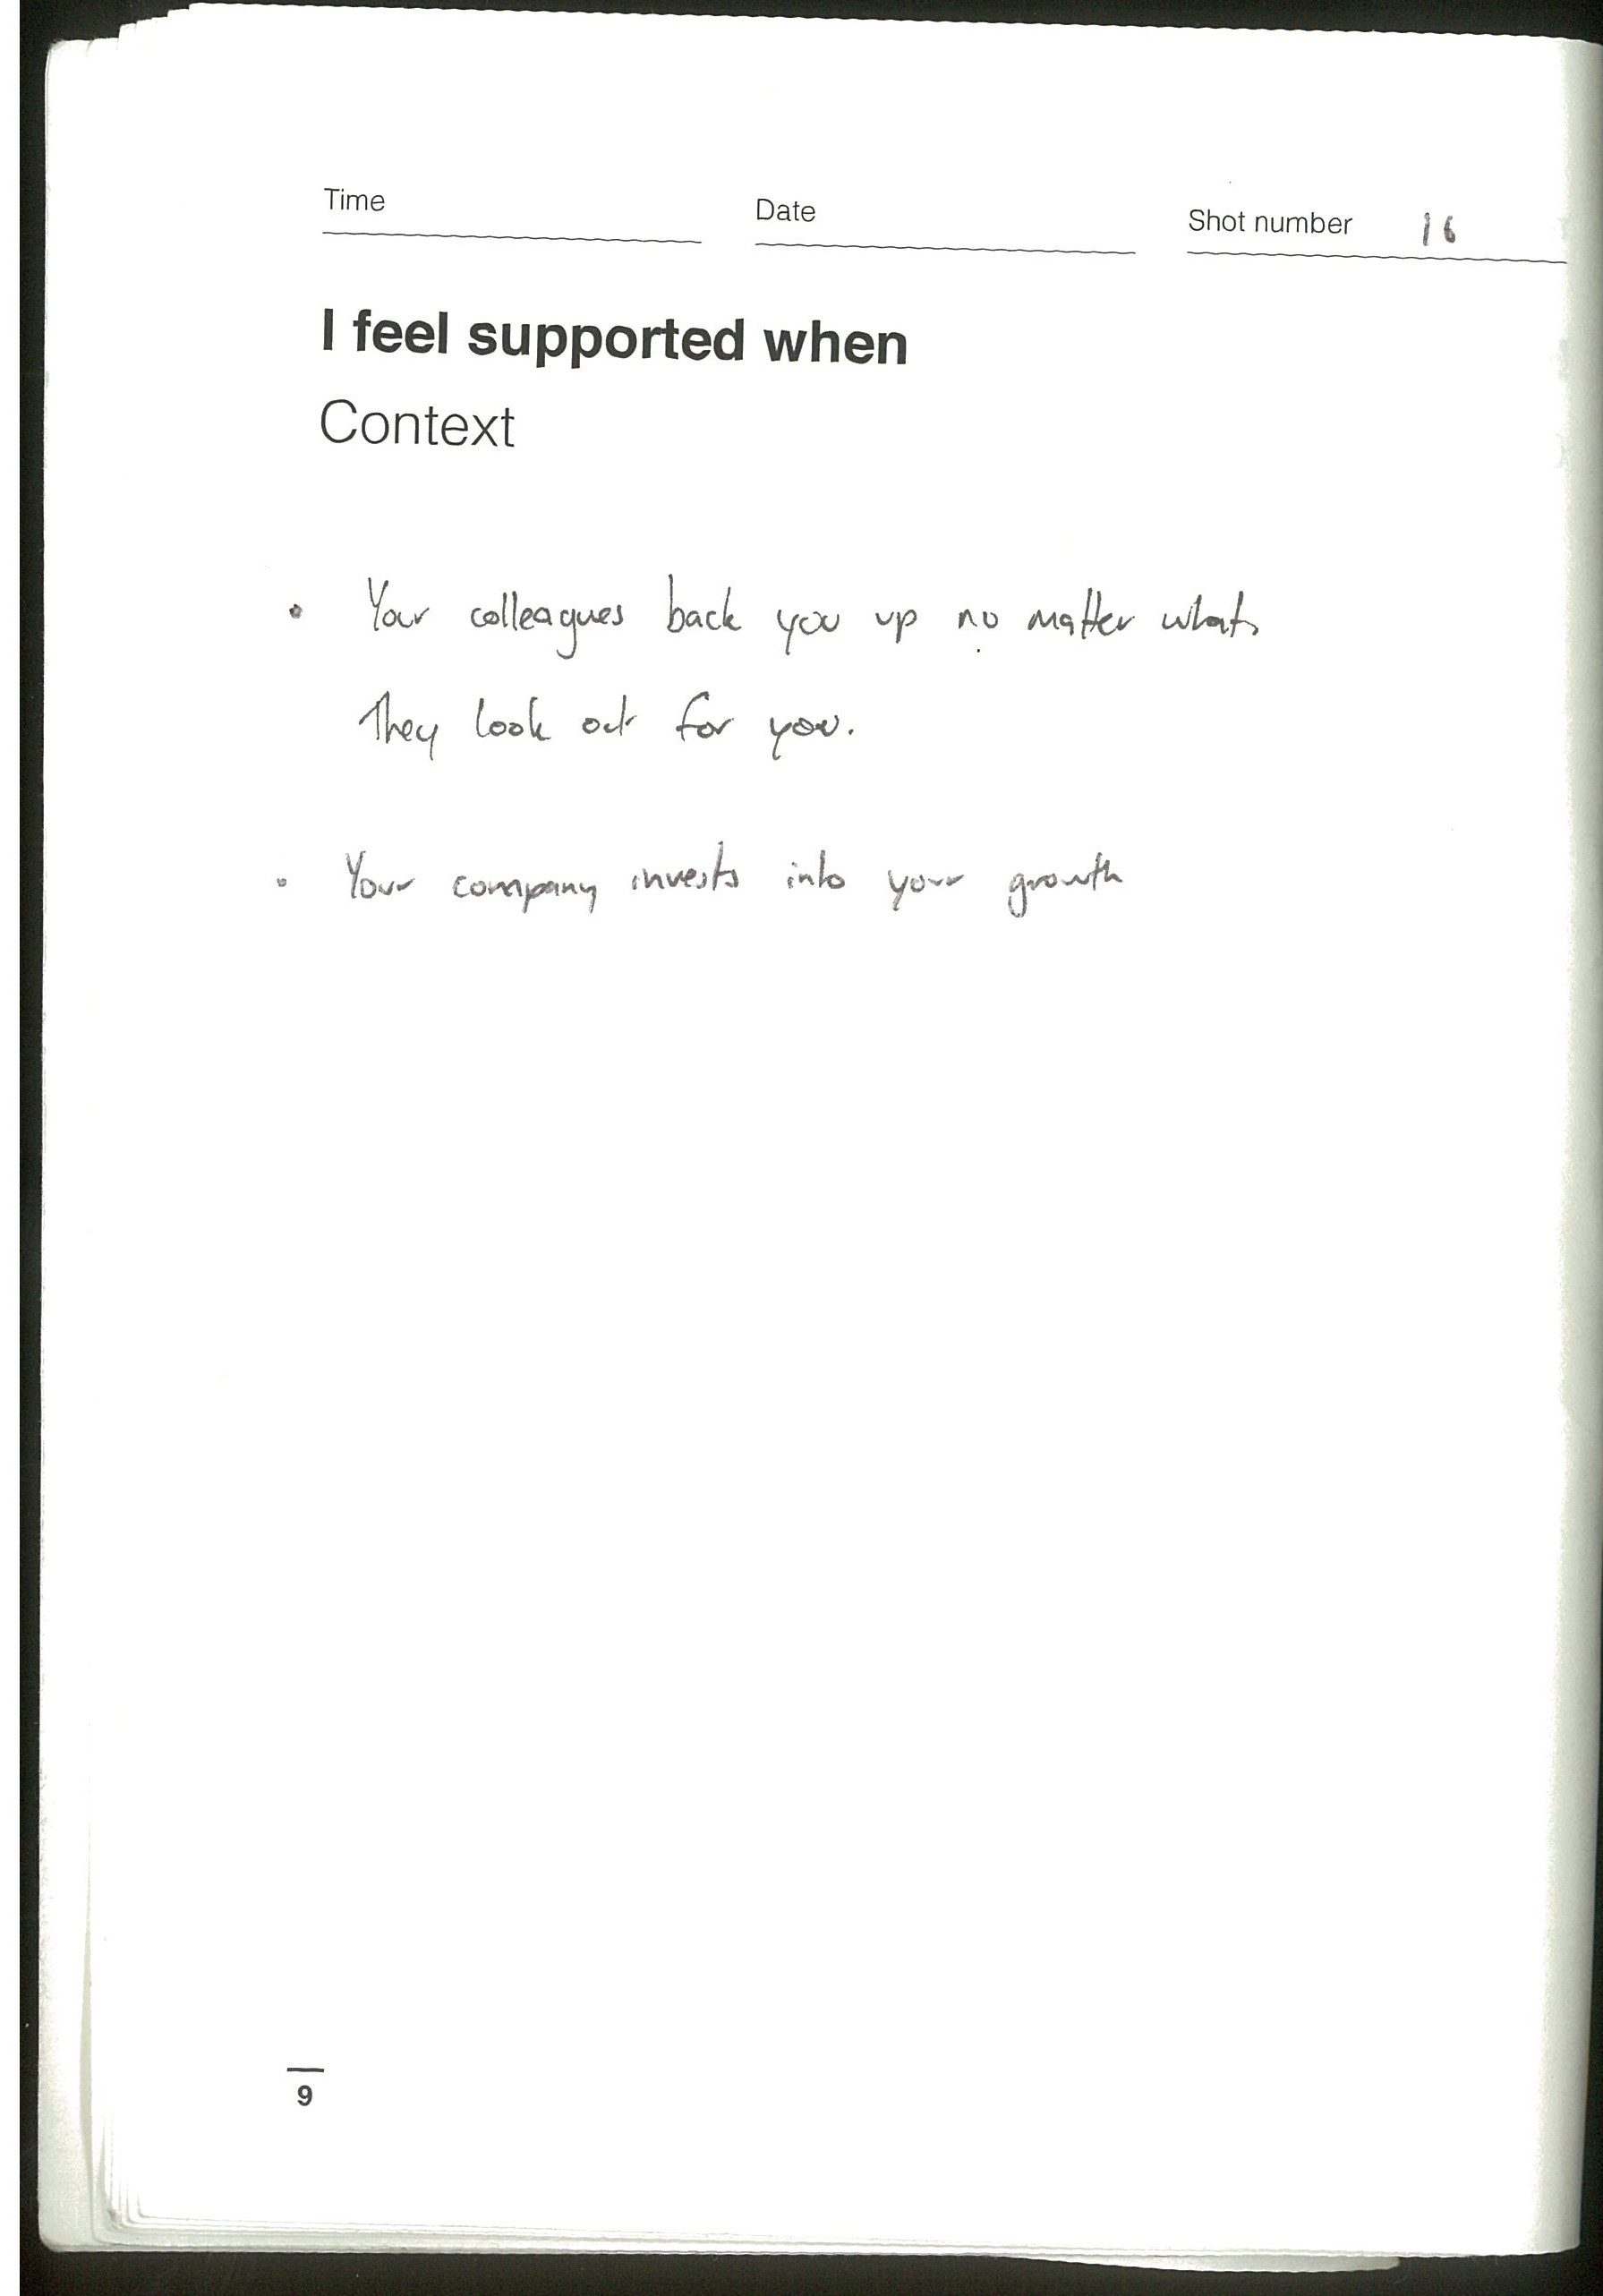 Time Date Shot number 16
I feel supported when
Context
• Your colleagues back you up no matter what,
They look out for you.
• Your company invests into your growth
9